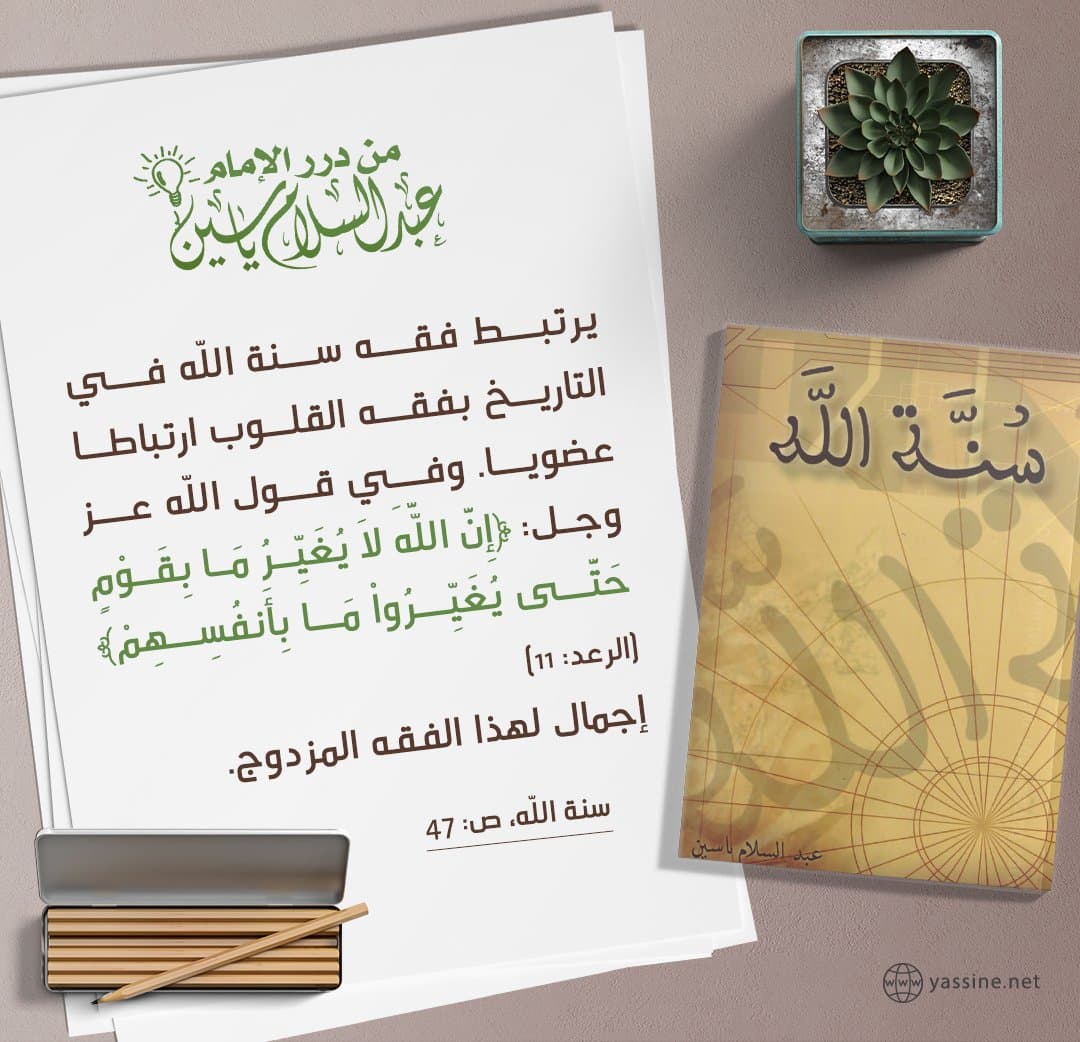 من درر الإمام
عبد السلام ياسين
يرتبط فقه سنة الله في
التاريخ بفقه القلوب ارتباطا
عضويا. وفي قول الله عز
وجل: ﴿إِنّ اللّهَ لاَ يُغَيِّرُ مَا بِقَوْمٍ
حَتّى يُغَيِّرُواْ مَا بِأَنفُسِهِمْ﴾
(الرعد: 11)
إجمال لهذا الفقه المزدوج.
سنة الله، ص: 47
سُنَّة اللَّه
عبد السلام ياسين
www yassine.net